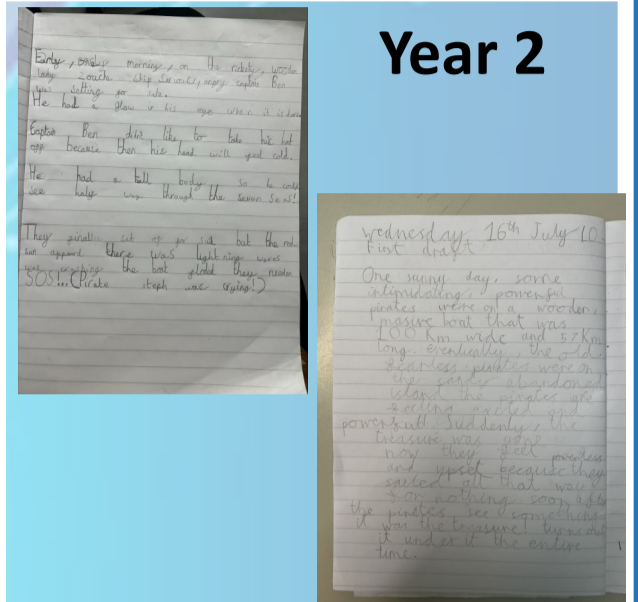 Year 2
Early, early morning, on the rickety, wooden
lady Zouche ship Serious, angry captin Ben
was setting for sile.
He had a glow in his eye when it is
Captin Ben didnt like to take his hat
opp because then his head will geel cold.
He had a tall body so he could
see halp way through the seven seas!
They pinally set opp por sile but the
sun appeard there was lightning waves
was crashing the boat
SOS!...(Pirate steph was crying!)
wednesday 16th July
First draft
One sunny day, some
intimidating, powerful
pirates were on a wooden,
massive boat that was
100 Km wide and 57 Km
long. eventually, the old
fearless pirates were on
the sandy abandoned
island the pirates are
feeling excited and
powerfull. Suddenly, the
treasure was gone
now they feel powerless
and upset because they
sailed all that way
for nothing soon after
the pirates see something
it was the treasure! turns out
it under it the entire
time.